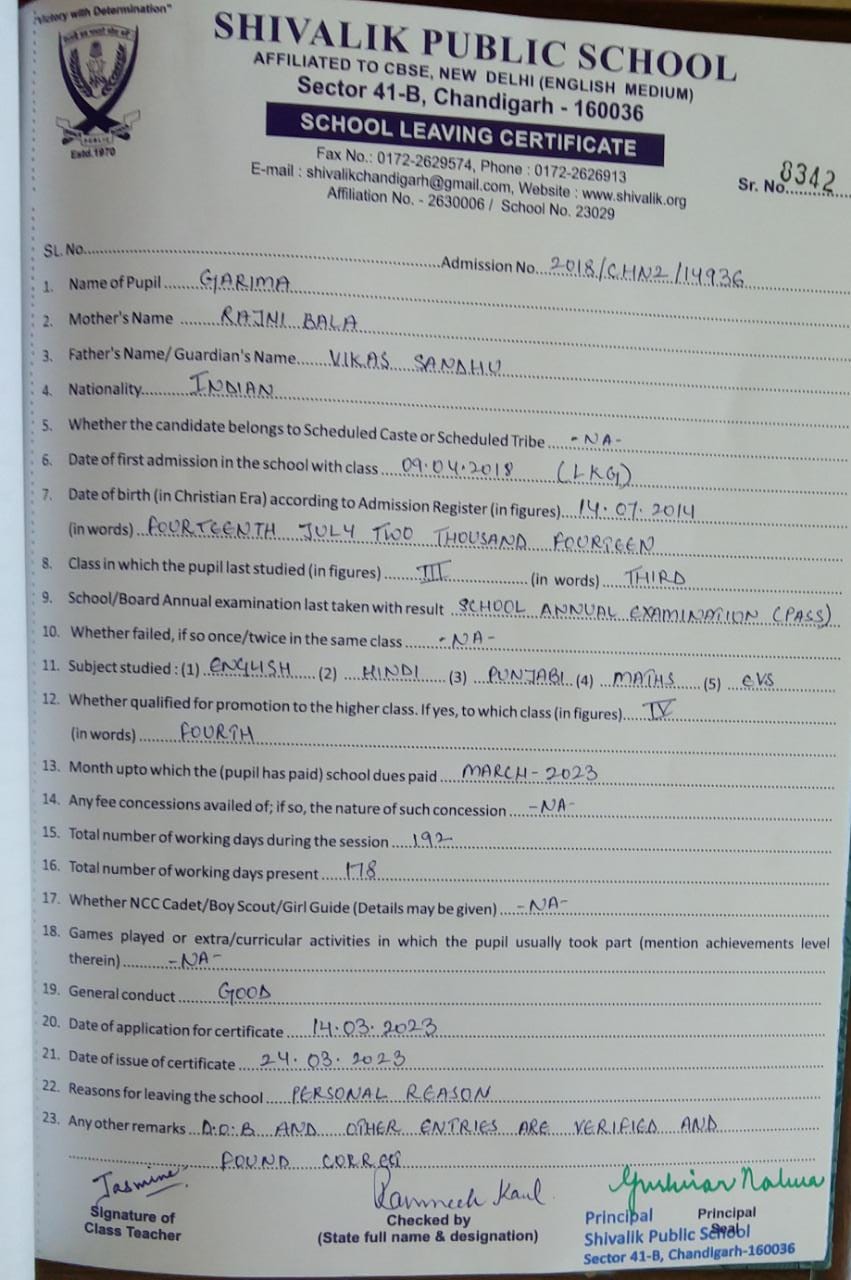 "Victory with Determination"
SHIVALIK PUBLIC SCHOOL
AFFILIATED TO CBSE, NEW DELHI (ENGLISH MEDIUM)
Sector 41-B, Chandigarh - 160036
SCHOOL LEAVING CERTIFICATE
Fax No.: 0172-2629574, Phone : 0172-2626913
E-mail : shivalikchandigarh@gmail.com, Website : www.shivalik.org
Affiliation No. - 2630006 / School No. 23029
PUBLIC
Estd.1970
Sr. No. 8342
SL. No.
Admission No. 2018/CHN2/14936
1. Name of Pupil GARIMA
2. Mother's Name RAJNI BALA
3. Father's Name/ Guardian's Name VIKAS SANDHU
4. Nationality INDIAN
5. Whether the candidate belongs to Scheduled Caste or Scheduled Tribe -NA-
6. Date of first admission in the school with class 09.04.2018 (LKG)
7. Date of birth (in Christian Era) according to Admission Register (in figures) 14.07.2014
(in words) FOURTEENTH JULY TWO THOUSAND FOURTEEN
8. Class in which the pupil last studied (in figures) III (in words) THIRD
9. School/Board Annual examination last taken with result SCHOOL ANNUAL EXAMINATION (PASS)
10. Whether failed, if so once/twice in the same class -NA-
11. Subject studied : (1) ENGLISH (2) HINDI (3) PUNJABI (4) MATHS (5) EVS
12. Whether qualified for promotion to the higher class. If yes, to which class (in figures) IV
(in words) FOURTH
13. Month upto which the (pupil has paid) school dues paid MARCH-2023
14. Any fee concessions availed of; if so, the nature of such concession -NA-
15. Total number of working days during the session 192
16. Total number of working days present 178
17. Whether NCC Cadet/Boy Scout/Girl Guide (Details may be given) -NA-
18. Games played or extra/curricular activities in which the pupil usually took part (mention achievements level
therein) -NA-
19. General conduct GOOD
20. Date of application for certificate 14.03.2023
21. Date of issue of certificate 24.03.2023
22. Reasons for leaving the school PERSONAL REASON
23. Any other remarks D.O.B AND OTHER ENTRIES ARE VERIFIED AND
FOUND CORRECT
Jasmine
Signature of
Class Teacher
Kaul
Checked by
(State full name & designation)
Principal
Seal
Principal
Shivalik Public School
Sector 41-B, Chandigarh-160036